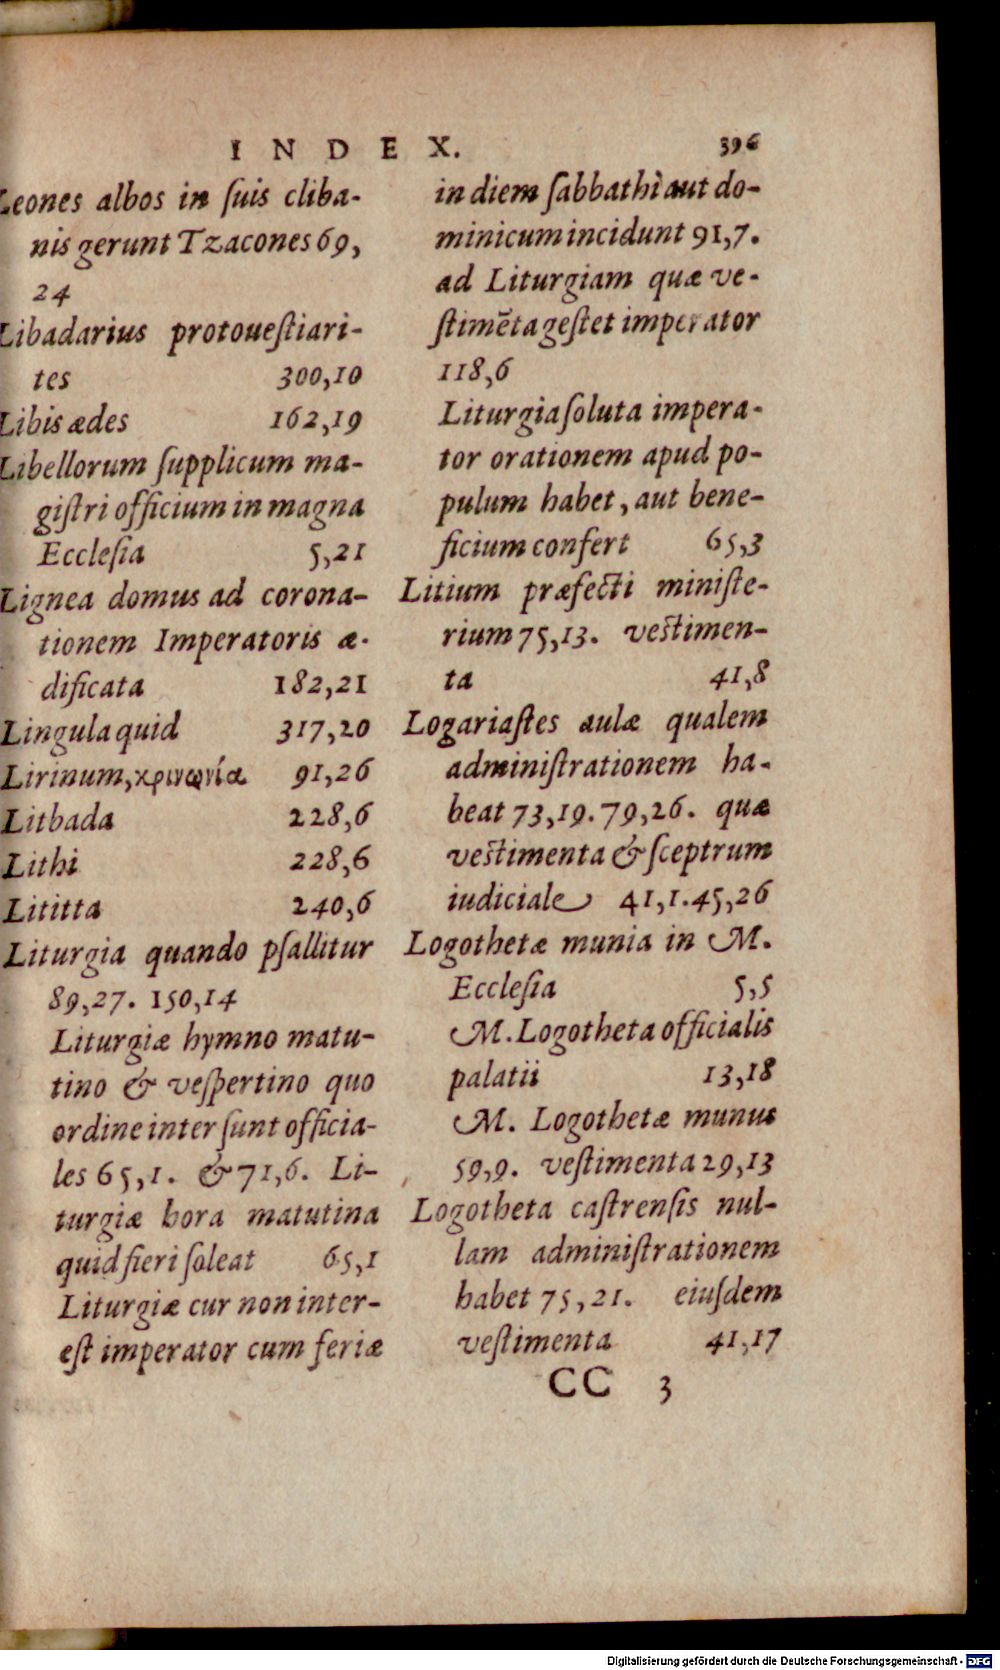 INDEX. 396
Leones albos in ſuis cliba-
nis gerunt Tzacones 69,
24
Libadarius protoueſtiari-
tes 300,10
Libis ædes 162,19
Libellorum ſupplicum ma-
giſtri officium in magna
Eccleſia 5,21
Lignea domus ad corona-
tionem Imperatoris æ-
dificata 182,21
Lingula quid 317,20
Lirinum, κρινωνία 91,26
Litbada 228,6
Lithi 228,6
Lititta 240,6
Liturgia quando pſallitur
89,27. 150,14
Liturgiæ hymno matu-
tino & veſpertino quo
ordine inter ſunt officia-
les 65,1. & 71,6. Li-
turgiæ hora matutina
quid fieri ſoleat 65,1
Liturgiæ cur non inter-
eſt imperator cum feriæ
in diem ſabbathi aut do-
minicum incidunt 91,7.
ad Liturgiam quæ ve-
ſtimēta geſtet imperator
118,6
Liturgia ſoluta impera-
tor orationem apud po-
pulum habet, aut bene-
ficium confert 65,3
Litium præfecti miniſte-
rium 75,13. vestimen-
ta 41,8
Logariaſtes aulæ qualem
adminiſtrationem ha-
beat 73,19. 79,26. quæ
vestimenta & ſceptrum
iudiciale 41,1. 45,26
Logothetæ munia in M.
Eccleſia 5,5
M. Logotheta officialis
palatii 13,18
M. Logothetæ munus
59,9. veſtimenta 29,13
Logotheta caſtrenſis nul-
lam adminiſtrationem
habet 75,21. eiuſdem
veſtimenta 41,17
CC 3
Digitalisierung gefördert durch die Deutsche Forschungsgemeinschaft - DFG